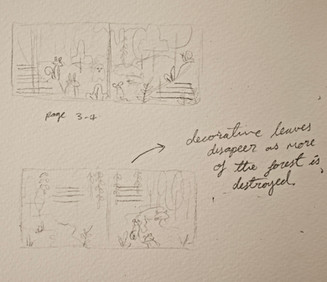 page 3-4
decorative leaves
disapeer as more
of the forest is
destroyed.